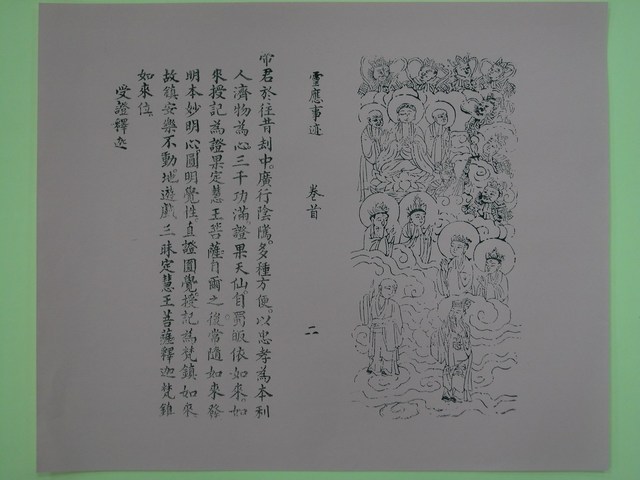 靈應事迹　卷首　二
帝君於往昔刼中。廣行陰隲。多種方便。以忠孝為本利
人濟物為心三千功滿證果天仙。自蜀皈依如來。如
來授記為證果定慧王菩薩自爾之後。常隨如來發
明本妙明心。圓明覺性。直證圓覺授記為梵鎮如來
故鎮安樂不動地遊戲三昧定慧王菩薩釋迦梵
如來位
受證釋迦